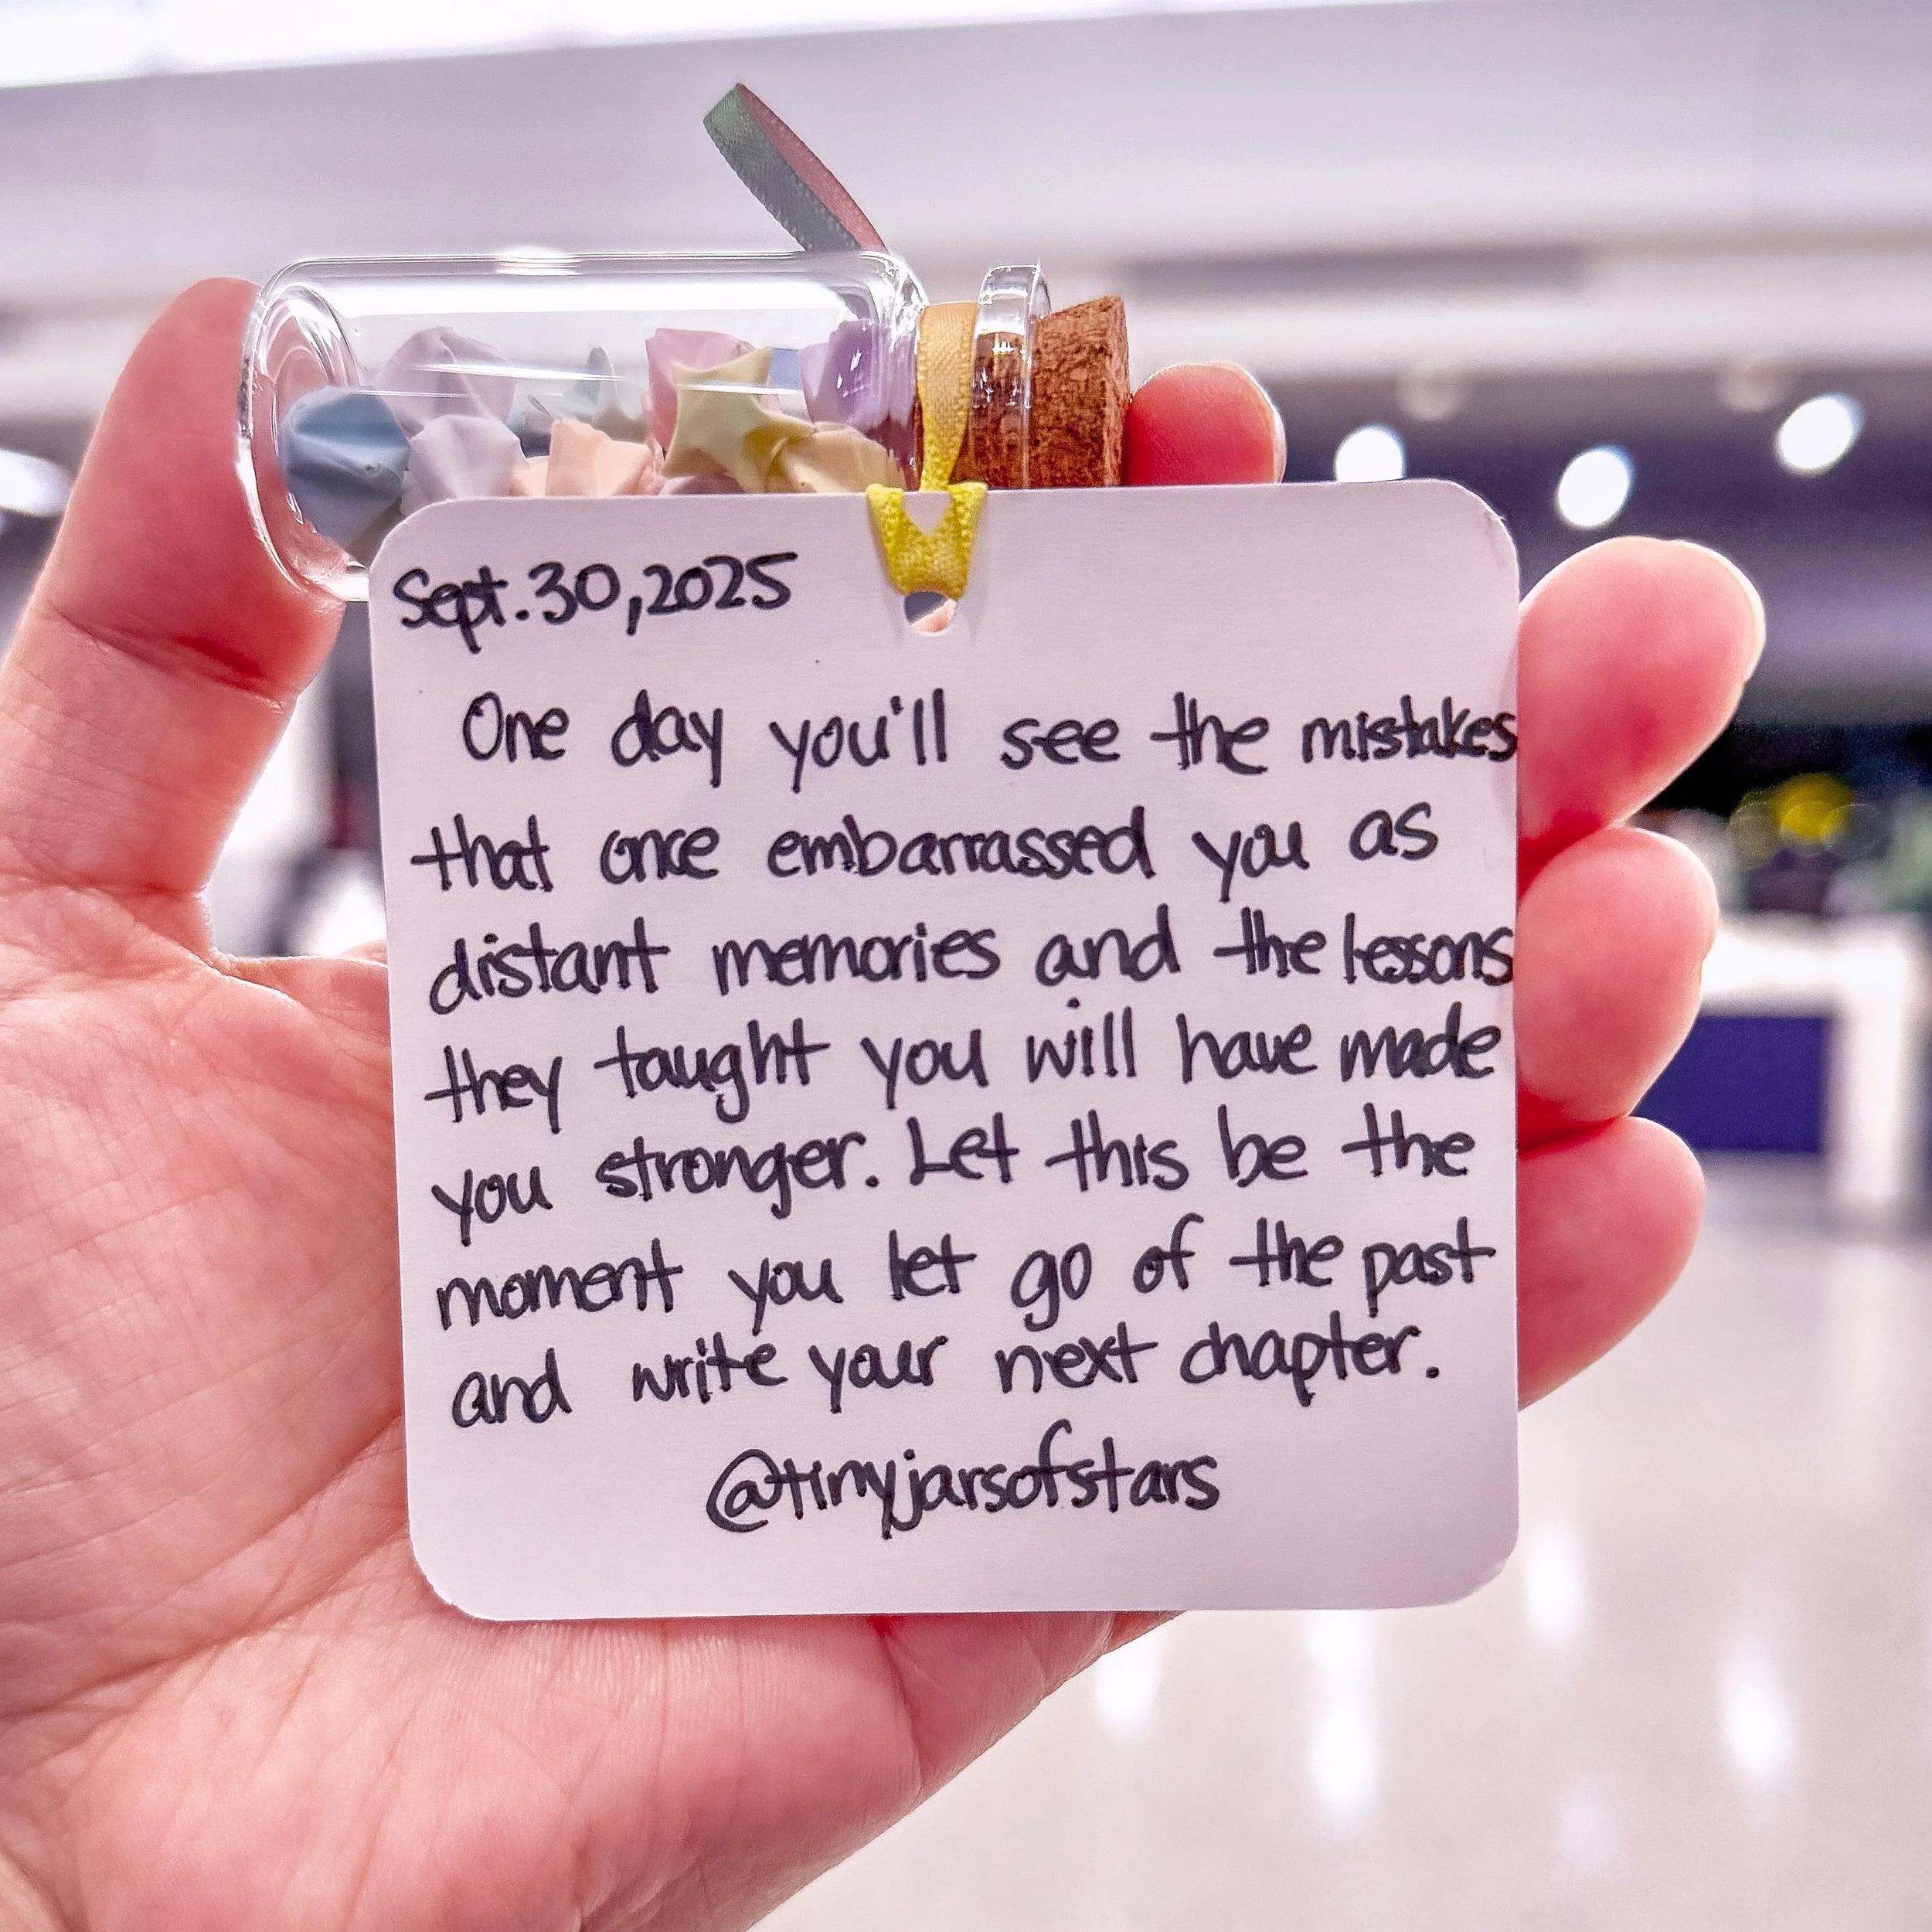 Sept. 30, 2025
One day you'll see the mistakes
that once embarrassed you as
distant memories and the lessons
they taught you will have made
you stronger. Let this be the
moment you let go of the past
and write your next chapter.
@tinyjarsofstars